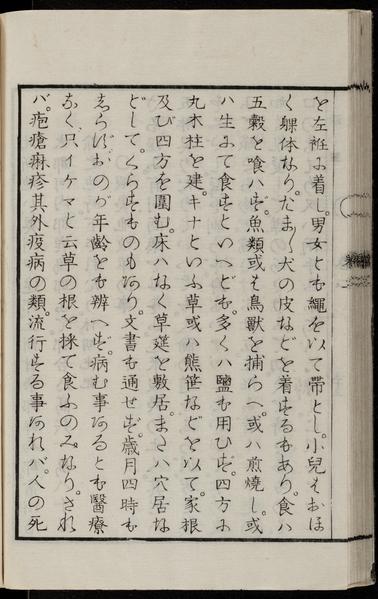 を左袵に着し。男女とも繩を以て帶とし。小兒はおほ
く躶体なり。たま〱犬の皮などを着するもあり。食ハ
五糓を喰ハず。魚類或は鳥獸を捕らへ。或ハ煎燒し。或
ハ生にて食すといへども。多くハ鹽も用ひず。四方に
丸木柱を建。キナといふ草或ハ熊笹などを以て。家根
及び四方を圍む。床ハなく草莚を敷居。またハ穴居な
どして。くらすものもあり。文書も通せず。歳月四時も
しらず。おのが年齡をも辨へず。病む事あるとも醫療
なく。只イケマと云草の根を採て食ふのみなり。され
バ。疱瘡痳疹其外疫病の類。流行する事あれバ。人の死